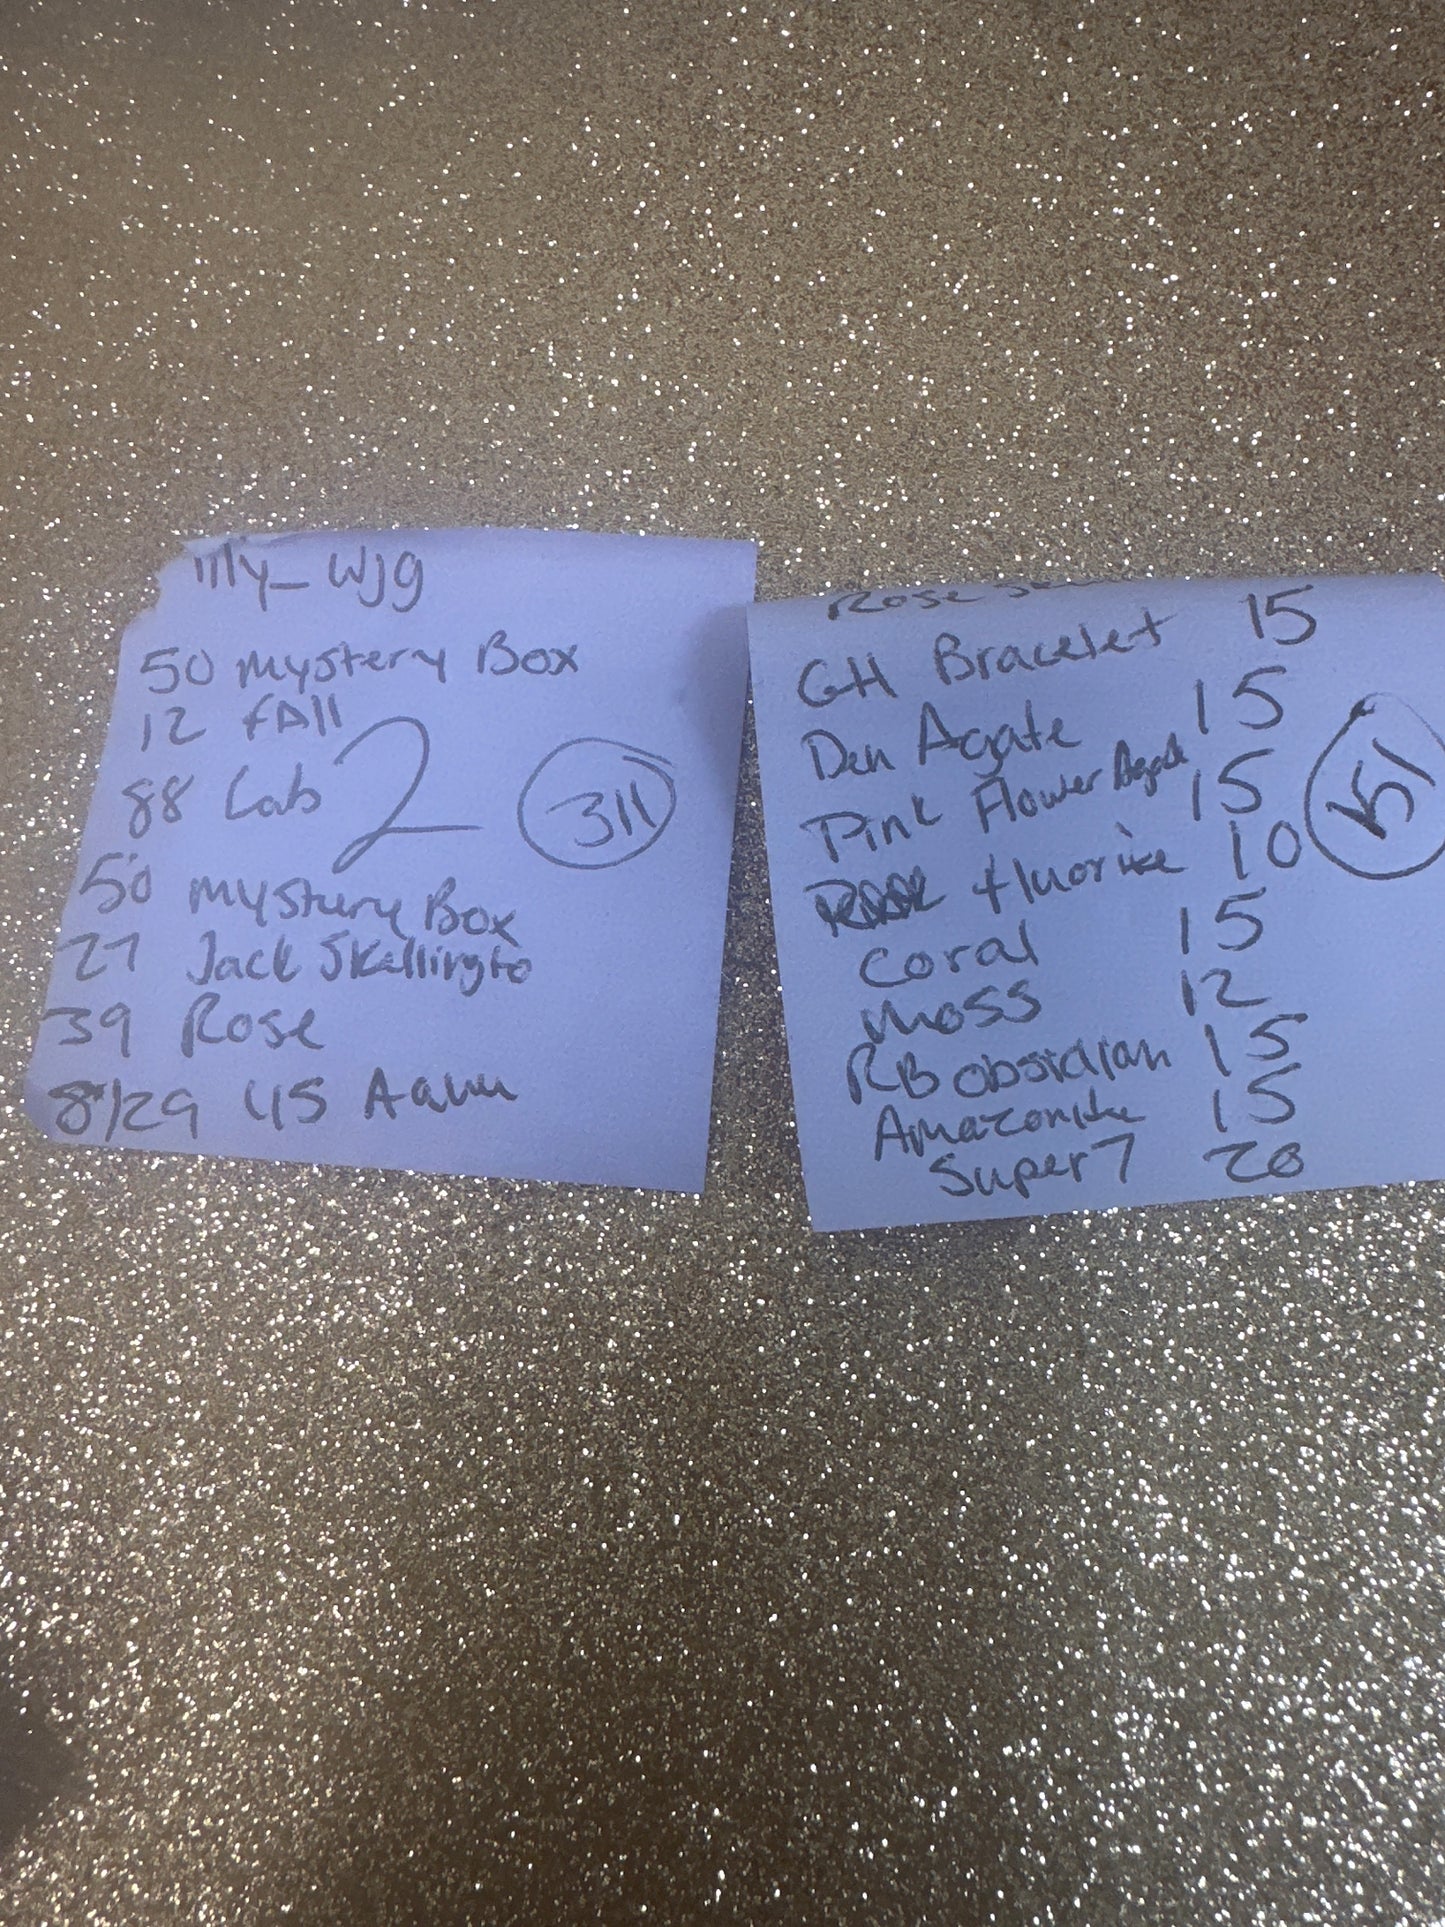 illy_wjg
50 Mystery Box
12 fall
88 Lab
2
311
50 Mystery Box
27 Jack Skellingto
39 Rose
8/29 45
Rose
GH Bracelet 15
Den Agate 15
Pink Flower Agate 15
fluorite 10
151
Coral 15
Moss 12
RB obsidian 15
Amazonite 15
Super 7 20